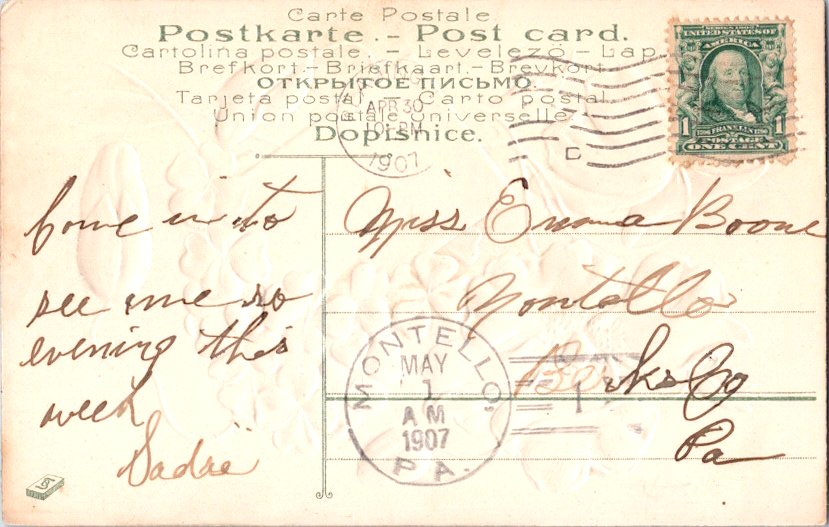 Carte Postale
Postkarte. – Post card.
Cartolina postale. – Levelező – Lap.
Brefkort.– Briefkaart.– Brevkort.
ОТКРЫТОЕ ПИСЬМО.
Tarjeta postal. Carto postal.
Union postale universelle.
Dopisnice.
APR 30
PM
1907
D
SERIES 1902
UNITED STATES OF
AMERICA
1 FRANKLIN 1
POSTAGE
ONE CENT
Come in to
see me so
evening this
week
Sadie
Miss Emma Boone
Montello
Berks Co
Pa
MONTELLO,
MAY
1
AM
1907
PA.
1